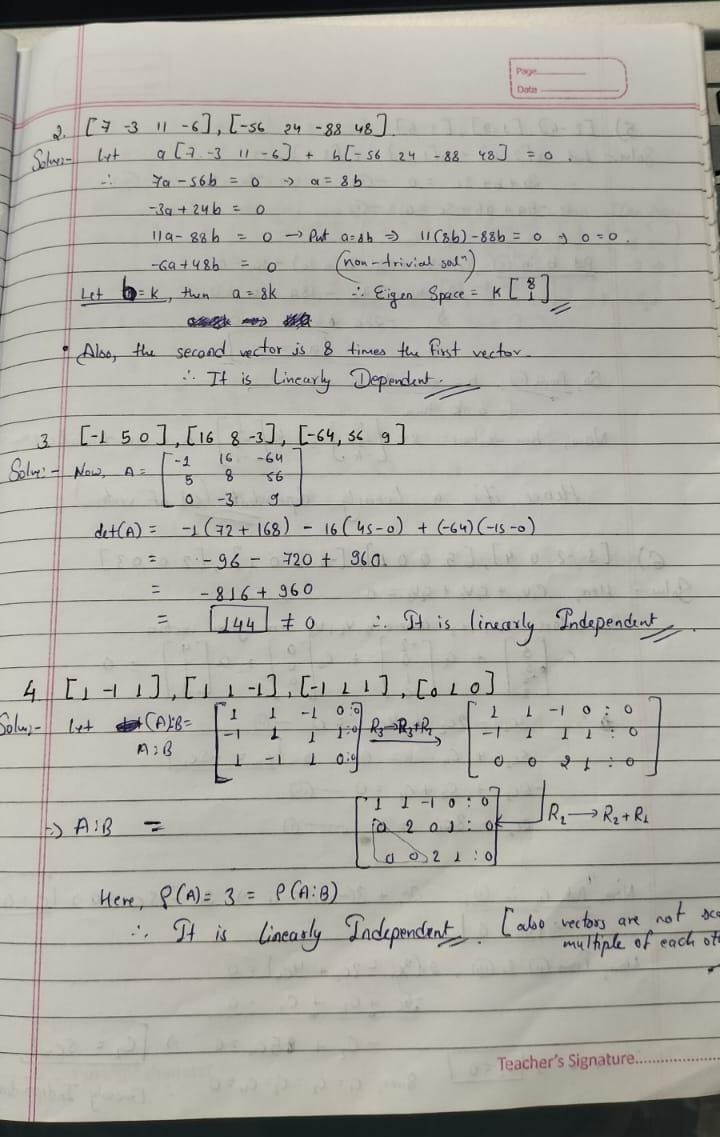 Page
Date
2. [7 -3 11 -6], [-56 24 -88 48].
Solun:- Let a[7 -3 11 -6] + b[-56 24 -88 48] = 0.
∴ 7a - 56b = 0 → a = 8b
-3a + 24b = 0
11a - 88b = 0 → Put a=8b ⇒ 11(8b) - 88b = 0 ⇒ 0 = 0.
-6a + 48b = 0 (non-trivial solⁿ)
Let b = k, then a = 8k ∴ Eigen Space = K [8 1]
• Also, the second vector is 8 times the first vector.
∴ It is Linearly Dependent.
3 [-1 5 0], [16 8 -3], [-64, 56 9]
Solun:- Now, A = [-1 16 -64
5 8 56
0 -3 9]
det(A) = -1(72 + 168) - 16(45-0) + (-64)(-15-0)
= -96 - 720 + 960.
= -816 + 960
= 144 ≠ 0 ∴ It is linearly Independent
4 [1 -1 1], [1 1 -1], [-1 1 1], [0 1 0]
Solun:- Let (A):B = [1 1 -1 0:0 [1 1 -1 0 : 0
A:B -1 1 1 1:0 R₃→R₃+R₂ -1 1 1 1 : 0
1 -1 1 0:0] 0 0 2 1 : 0]
⇒ A:B = [1 1 -1 0 : 0 R₂ → R₂ + R₁
0 2 0 1 : 0
0 0 2 1 : 0]
Here, ρ(A) = 3 = ρ(A:B)
∴ It is Linearly Independent. [also vectors are not
multiple of each
Teacher's Signature